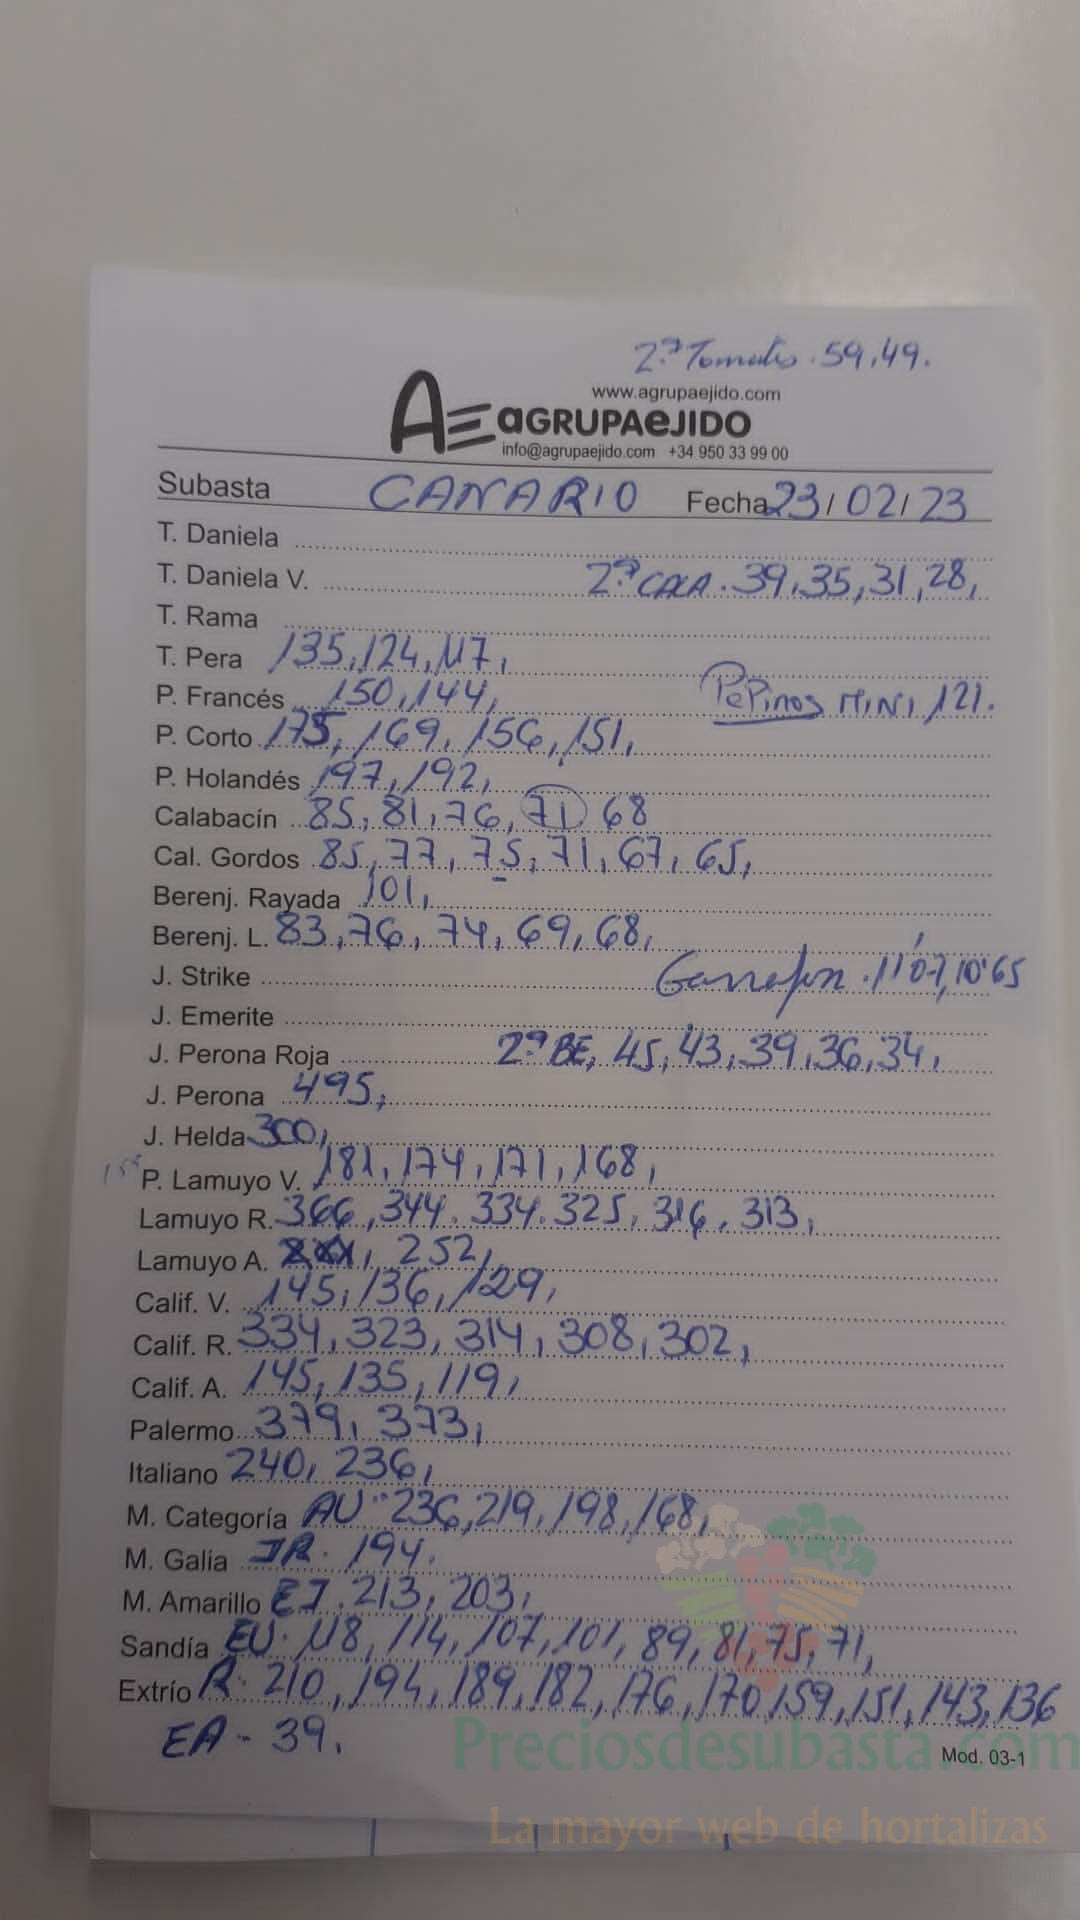 2ª Tomates. 59, 49.
www.agrupaejido.com
AE aGRUPAeJIDO
info@agrupaejido.com +34 950 33 99 00
Subasta CANARIO Fecha 23/02/23
T. Daniela
T. Daniela V. 2ª CALA. 39, 35, 31, 28,
T. Rama
T. Pera 135, 124, 117,
P. Francés 150, 144, PePinos MINI 121.
P. Corto 175, 169, 156, 151,
P. Holandés 197, 192,
Calabacín 85, 81, 76, 71 68
Cal. Gordos 85, 77, 75, 71, 67, 65,
Berenj. Rayada 101,
Berenj. L. 83, 76, 74, 69, 68,
J. Strike Garrafon. 11'07, 10'65
J. Emerite
J. Perona Roja 2ª BE, 45, 43, 39, 36, 34,
J. Perona 495,
J. Helda 300,
P. Lamuyo V. 181, 174, 171, 168,
Lamuyo R. 366, 344. 334. 325, 316, 313,
Lamuyo A. 252,
Calif. V. 145, 136, 129,
Calif. R. 334, 323, 314, 308, 302,
Calif. A. 145, 135, 119,
Palermo 379, 373,
Italiano 240, 236,
M. Categoría AU 236, 219, 198, 168,
M. Galía IR. 194.
M. Amarillo EJ. 213, 203,
Sandía EU. 118, 114, 107, 101, 89, 81, 75, 71,
Extrío R. 210, 194, 189, 182, 176, 170, 159, 151, 143, 136
EA - 39.
Preciosdesubasta.com
Mod. 03-1
La mayor web de hortalizas